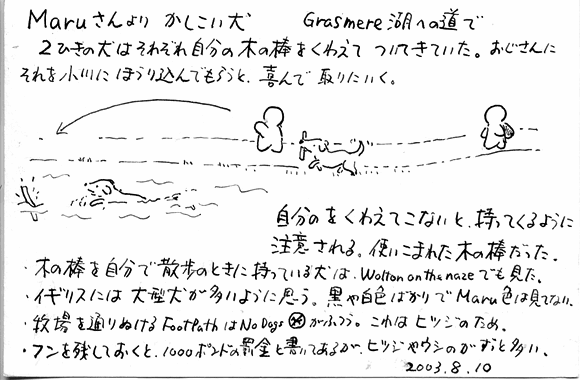 Maruさんより かしこい犬　Grasmere湖への道で
2ひきの犬はそれぞれ自分の木の棒をくわえて ついてきていた。おじさんに
それを小川に ほうり込んでもらうと、喜んで 取りにいく。
自分のをくわえてこないと、持ってくるように
注意される。使いこまれた木の棒だった。
・木の棒を自分で散歩のときに持っている犬は、Walton on the nazeでも見た。
・イギリスには 大型犬が多いように思う。黒や白色ばかりでMaru色は見てない。
・牧場を通りぬけるFootPathはNo Dogs がふつう。これは ヒツジのため。
・フンを残しておくと、1000ポンドの罰金と書いてあるが、ヒツジやウシのがずっと多い。
2003.8.10